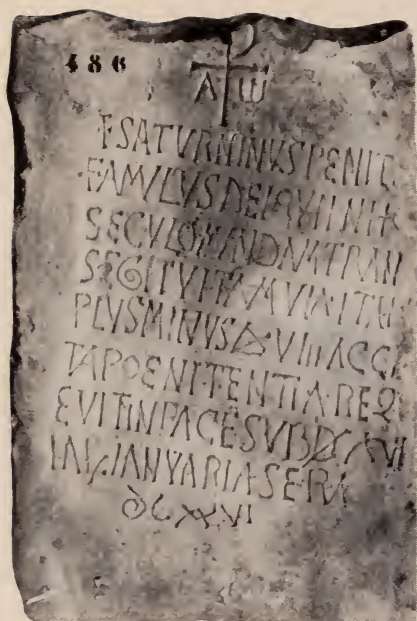 486
Α Ѡ
SATVRNINVS PENIT
FAMVLVS DEI QVI IN H
SECVLO MVNDAM TRAN
SEGIT VITAM VIXIT AN
PLVS MINVS ACCE
TA POENITENTIA REQ
EVIT IN PACE SVB D XVI
KAL IANVARIAS ERA
DCXXVI